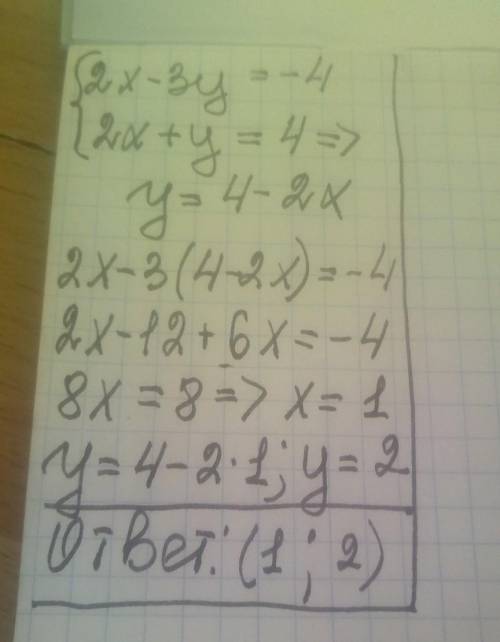 {2x-3y = -4
2x+y = 4 =>
y = 4 - 2x
2x-3(4-2x)=-4
2x-12+6x=-4
8x = 8 => x = 1
y = 4-2·1; y = 2
Ответ: (1; 2)